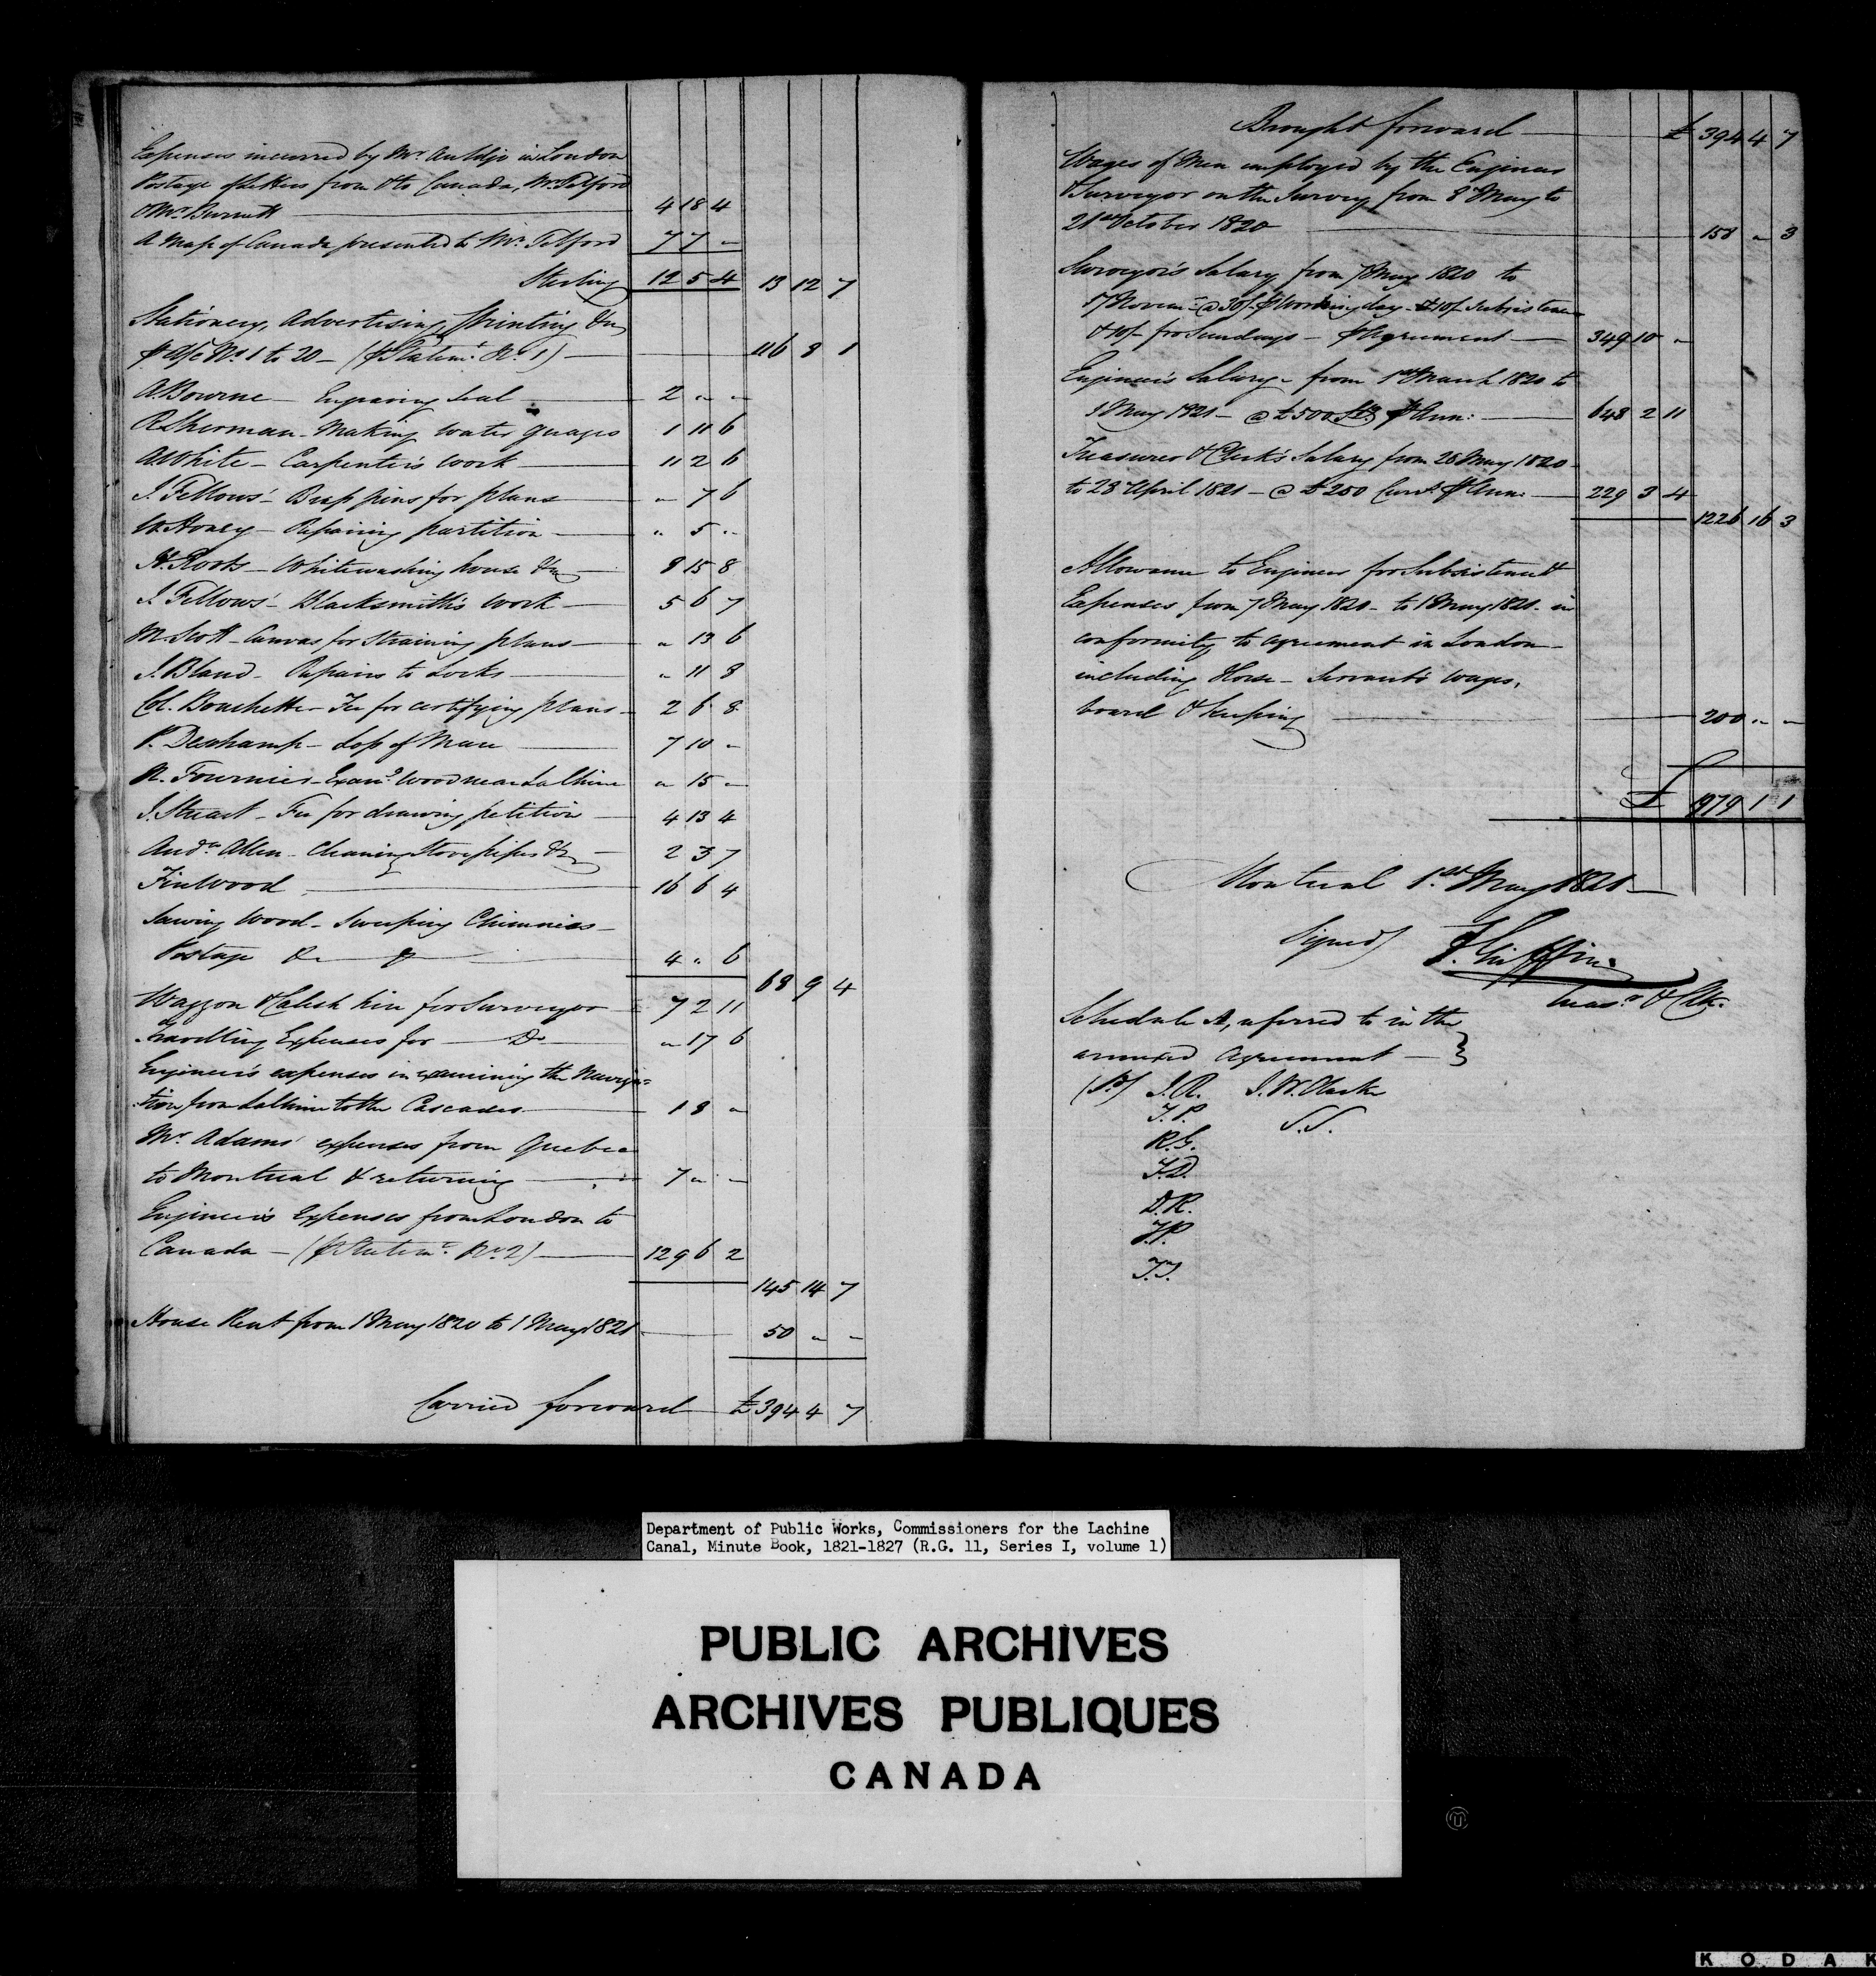 Expenses incurred by Mr Auldjo in London
Postage of letters from & to Canada, Mr Telford
& Mr Burnett 4 18 4
A Map of Canada presented to Mr Telford 7 7 -
Sterling 12 5 4 13 12 7
Stationery, Advertising, Printing &c
p A/c No 1 to 20 - (p Statemt No 1) - 116 8 1
A. Bourne - Engraving Seal - 2 " "
R. Sherman - Making Water guages 1 11 6
A. White - Carpenter's work 11 2 6
J. Fellows' - Brass pins for plans " 7 6
W. Honey - Repairing partition - " 5 "
H. Roots - Whitewashing house &c 8 15 8
J. Fellows' - Blacksmith's work - 5 6 7
M. Scott - Canvas for straining plans - " 13 6
J. Bland - Repairs to Locks " 11 8
Col. Bouchette - Fee for certifying plans - 2 6 8
P. Deschamp - Loss of Mare 7 10 -
R. Fournier - Examg Wood near Lachine " 15 -
J. Stuart - Fee for drawing petition 4 13 4
Andw Allen - Cleaning Stove pipes &c - 2 3 7
Firewood 16 6 4
Sawing Wood - Sweeping Chimnies -
Postage &c &c 4 " 6
68 9 4
Waggon & Calech hire for Surveyor 7 2 11
Travelling Expenses for - Do - " 17 6
Engineer's expenses in examining the Naviga=
=tion from Lachine to the Cascades 1 8 -
Mr Adams' expenses from Quebec
to Montreal & returning 7 " -
Engineer's Expenses from London to
Canada - (p Statemt No 2) 129 6 2
145 14 7
House Rent from 1 May 1820 to 1 May 1821 50 " -
Carried forward £394 4 7
Brought forward £ 394 4 7
Wages of Men employed by the Engineer
& Surveyor on the Survey from 8 May to
21st October 1820 158 " 3
Surveyor's Salary from 7 May 1820 to
17 Novemr @ 30/. p Working day - & 10/. Subsistence
& 10/. for Sundays - p Agreement - 349 10 -
Engineer's Salary - from 1st March 1820 to
1 May 1821 - @ £500 Stg p Ann: 648 2 11
Treasurer & Clerk's Salary from 28 May 1820 -
to 28 April 1821 - @ £250 Curry p Ann: 229 3 4
1226 16 3
Allowance to Engineer for Subsistence &
Expenses from 7 May 1820 - to 1 May 1821 - in
conformity to agreement in London -
including Horse - Servant's wages,
board & keeping 200 " -
£ 1979 1 1
Montreal 1st May 1821 -
Signed) F. Griffin
Treasr & Clk.
Schedule A, referred to in the
annexed Agreement - }
(Sd) J.R. J.W. Clarke
T.P. S.S.
R.G.
F.D.
D.R.
T.P.
T.T.
Department of Public Works, Commissioners for the Lachine
Canal, Minute Book, 1821-1827 (R.G. 11, Series I, volume 1)
PUBLIC ARCHIVES
ARCHIVES PUBLIQUES
CANADA
KODAK